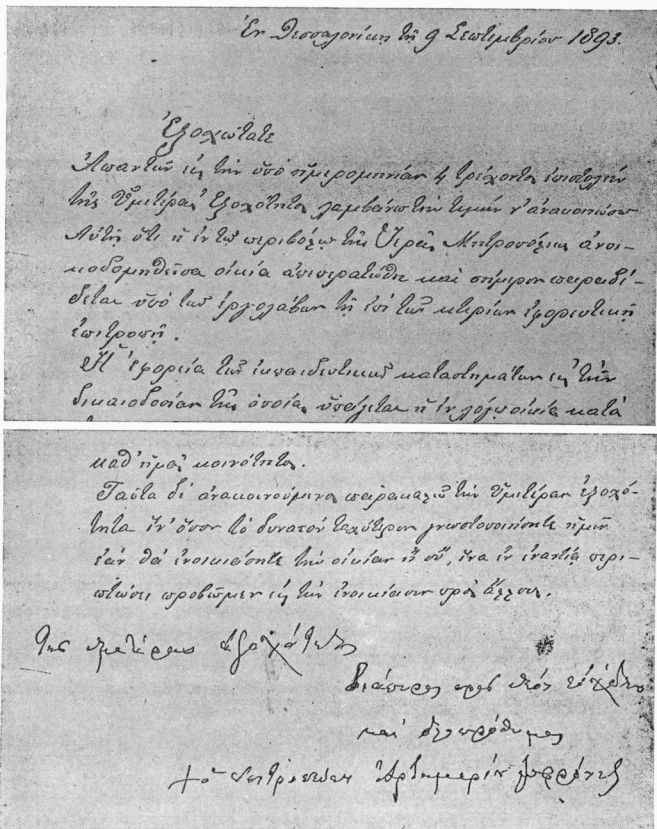 Ἐν Θεσσαλονίκῃ τῇ 9 Σεπτεμβρίου 1893.
Ἐξοχώτατε
Ἀπαντῶν εἰς τὴν ὑπὸ ἡμερομηνίαν 4 τρέχοντος ἐπιστολὴν
τῆς Ὑμετέρας Ἐξοχότητος λαμβάνω τὴν τιμὴν ν' ἀνακοινώσω
Αὐτῇ ὅτι ἡ ἐν τῷ περιβόλῳ τῆς Ἱερᾶς Μητροπόλεως ἀνοι-
κοδομηθεῖσα οἰκία ἀπεπερατώθη καὶ σήμερον παραδί-
δεται ὑπὸ τῶν ἐργολάβων τῇ ἐπὶ τῶν κτιρίων ἐφορευτικῇ
ἐπιτροπῇ.
Ἡ ἐφορεία τῶν ἐκπαιδευτικῶν καταστημάτων εἰς τὴν
δικαιοδοσίαν τῆς ὁποίας ὑπάγεται ἡ ἐν λόγῳ οἰκία κατὰ
καθ' ἡμᾶς κοινότητος.
Ταῦτα δὲ ἀνακοινούμενος παρακαλῶ τὴν Ὑμετέραν ἐξοχό-
τητα ἵν' ὅσον τὸ δυνατὸν ταχύτερον γνωστοποιήσητε ἡμῖν
ἐὰν θὰ ἐνοικιάσητε τὴν οἰκίαν ἢ οὔ, ἵνα ἐν ἐναντίᾳ περι-
πτώσει προβῶμεν εἰς τὴν ἐνοικίασιν πρὸς ἄλλους.
Της υμετέρας εξοχότητος
διάπυρος προς θεόν ευχέτης
και ὁλοπρόθυμος
† ὁ